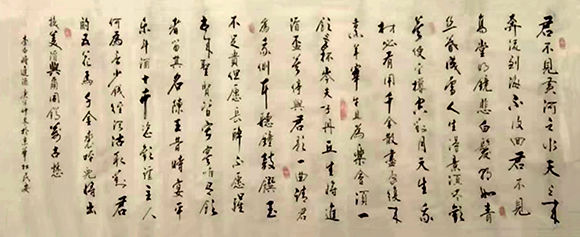 君不見黃河之水天上來
奔流到海不復回君不見
高堂明鏡悲白髮朝如青
絲暮成雪人生得意須盡歡
莫使金樽空對月天生我
材必有用千金散盡還復來
烹羊宰牛且為樂會須一
飲三百杯岑夫子丹丘生將進
酒盃莫停與君歌一曲請君
為我傾耳聽鐘鼓饌玉
不足貴但願長醉不願醒
古來聖賢皆寂寞唯有飲
者留其名陳王昔時宴平
樂斗酒十千恣歡謔主人
何為言少錢徑須沽取對君
酌五花馬千金裘呼兒將出
換美酒與爾同銷萬古愁
李白將進酒